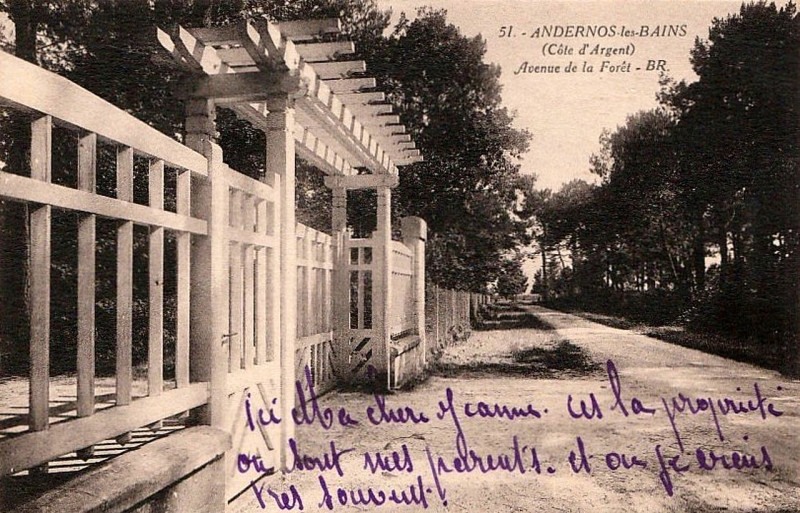 51. - ANDERNOS-les-BAINS
(Côte d'Argent)
Avenue de la Forêt - BR.
ici Ma chere Jeanne. ces la propriete
ou sont mes parents. et ou je viens
tres souvent!